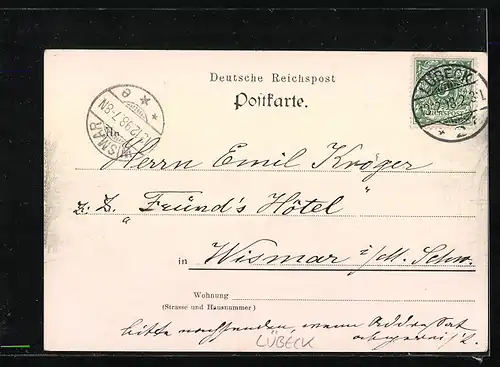 Deutsche Reichspost
Postkarte.
LÜBECK
WISMAR
12.98.7-8N
An
Herrn Emil Kröger
z. Z. "Fründ's Hôtel"
in Wismar i/M. Schw.
Wohnung
(Strasse und Hausnummer)
bitte nachsenden, wenn Addressat
abgereist.
LÜBECK